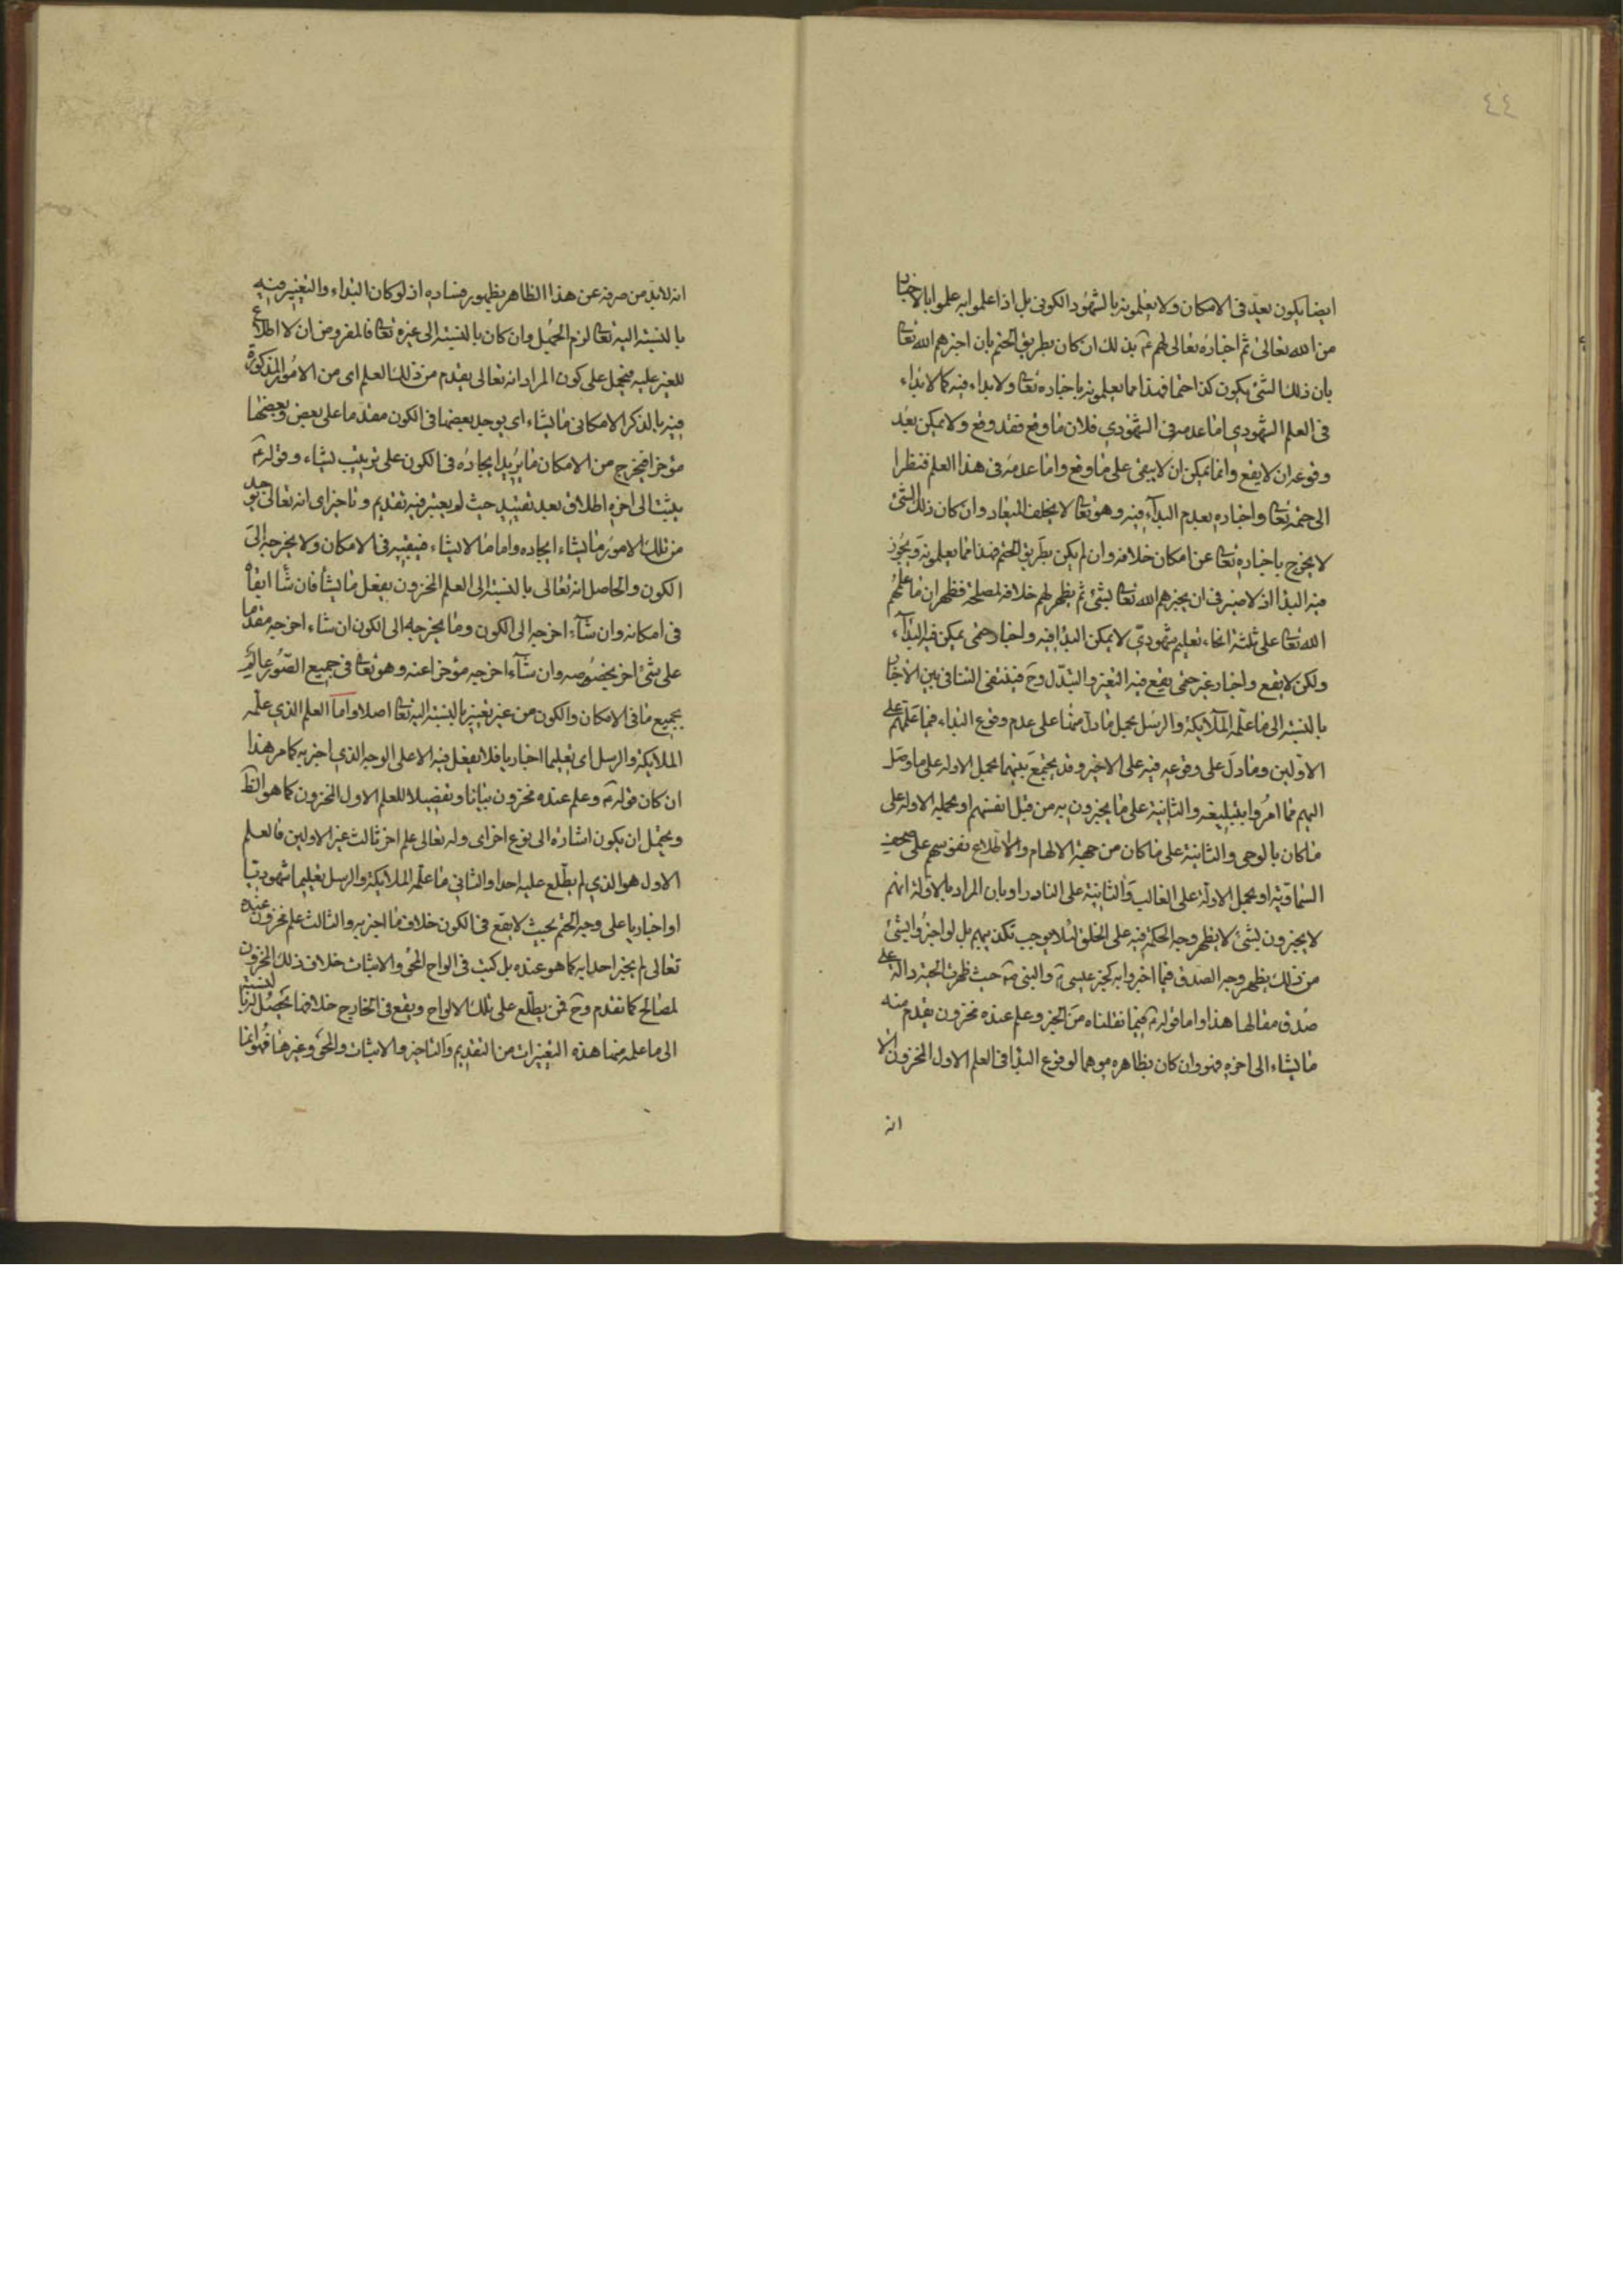 ٤٤
ايضا يكون بعد فى الامكان ولا يعلمونه بالشهود الكونى بل اذا علموا به علموا بالاخبار
من الله تعالى ثم اخباره تعالى لهم عم بذلك ان كان بطريق الحتم بان اخبرهم الله تعا
بان ذلك الشئ يكون كذا حتما فهذا مما يعلمونه باخباره تعا ولا بداء فيه كما لا بداء
فى العلم الشهودي اما عدمه فى الشهودي فلان ما وقع فقد وقع ولا يمكن بعد
وقوعه ان لا يقع وانما يمكن ان لا يبقى على ما وقع واما عدمه فى هذا العلم فنظرا
الى حتمه تعا واخباره بعدم البدآء فيه وهو تعا لا يخلف الميعاد وان كان ذلك الشئ
لا يخرج باخباره تعا عن امكان خلافه وان لم يكن بطريق الحتم فهذا مما يعلمونه ويجوز
فيه البدا اذ لا ضير فى ان يخبرهم الله تعا بشئ ثم يظهر لهم خلافه لمصلحة فظهر ان ما علمهم
الله تعا على ثلثة انحاء تعليم شهودي لا يمكن البدا فيه واخبار حتمى يمكن فيه البدآء
ولكن لا يقع واخبار غير حتمى يقع فيه التغير والتبدل وح فينتفى التنافى بين الاخبار
بالنسبة الى ما علمه الملآئكة والرسل بحمل ما دل منها على عدم وقوع البداء فيما علمهم على
الاولين وما دل على وقوعه فيه على الاخير وقد يجمع بينهما بحمل الاولة على ما وصل
اليهم مما امروا بتبليغه والثانية على ما يخبرون به من قبل انفسهم او بحملة الاولة على
ما كان بالوحى والثانية على ما كان من جهة الالهام والاطلاع نفوسهم على الصحف
السماوية او بحمل الاولة على الغالب والثانية على النادر او بان المراد بالاولة انهم
لا يخبرون بشئ لا يظهر وجه الحكمة فيه على الخلق لئلا يوجب تكذيبهم بل لو اخبروا بشئ
من ذلك يظهر وجه الصدق فيما اخبروا به كخبر عيسى ع والنبى ص حيث ظهرت الحية دالة على
صدق مقالها هذا واما قوله ع فيما نقلناه من الخبر وعلم عنده مخزون يقدم منه
ما يشاء الى اخره فهو وان كان بظاهره موهما لوقوع البدا فى العلم الاول المخزون الا
انه
انه لا بد من صرفه عن هذا الظاهر بظهور فساده اذ لو كان البداء والتغيير فيه
بالنسبة اليه تعا لزم الجهل وان كان بالنسبة الى غيره تعا فالمفروض ان لا اطلاع
للغير عليه فيحمل على كون المراد انه تعالى يقدم من ذلك العلم اى من الامور المذكورة
فيه بالذكر الامكانى ما يشاء اى يوجد بعضها فى الكون مقدما على بعض وبعضها
مؤخرا فيخرج من الامكان ما يريد ايجاده فى الكون على ترتيب يشاء وقوله ع
يثبت الى اخره اطلاق بعد تقييد حيث لم يعتبر فيه تقديم وتاخير اى انه تعالى يوجد
من تلك الامور ما يشاء ايجاده واما ما لا يشاء فيبقيه فى الامكان ولا يخرجه الى
الكون والحاصل انه تعالى بالنسبة الى العلم المخزون يفعل ما يشآ فان شآ ابقاه
فى امكانه وان شآء اخرجه الى الكون وما يخرجه الى الكون ان شاء اخرجه مقدما
على شئ اخر بخصوصه وان شآء اخرجه مؤخرا عنه وهو تعا فى جميع الصور عالم
بجميع ما فى الامكان والكون من غير تغيير بالنسبة اليه تعا اصلا واما العلم الذي علمه
الملآئكة والرسل اى تعليما اخباريا فلا يفعل فيه الا على الوجه الذي اخبر به كما مر هذا
ان كان قوله ع وعلم عنده مخزون بيانا وتفصيلا للعلم الاول المخزون كما هو الظ
ويحتمل ان يكون اشارة الى نوع اخر اى وله تعالى علم اخر ثالث غير الاولين فالعلم
الاول هو الذي لم يطلع عليه احدا والثانى ما علمه الملائكة والرسل تعليما شهوديا
او اخباريا على وجه الحتم بحيث لا يقع فى الكون خلاف ما اخبر به والثالث علم مخزون عنده
تعالى لم يخبر احدا به كما هو عنده بل كتب فى الواح المحو والاثبات خلاف ذلك المخزون
لمصالح كما تقدم وح فمن يطلع على تلك الالواح ويقع فى الخارج خلافها تحصل له بالنسبة
الى ما علمه منها هذه التغيرات من التقديم والتاخير والاثبات والمحو وغيرها فهو انما